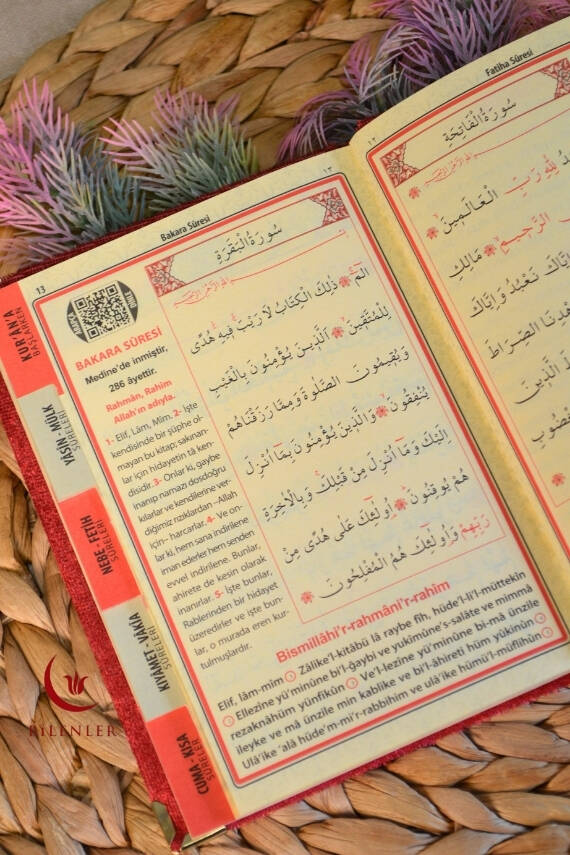 13
Bakara Sûresi
١٣
سُورَةُ الْبَقَرَةِ
بِسْمِ اللّٰهِ الرَّحْمٰنِ الرَّحِيمِ
الٓمٓ ذٰلِكَ الْكِتَابُ لَا رَيْبَ فِيهِ هُدًى
لِلْمُتَّقِينَ اَلَّذِينَ يُؤْمِنُونَ بِالْغَيْبِ
وَيُقِيمُونَ الصَّلٰوةَ وَمِمَّا رَزَقْنَاهُمْ
يُنْفِقُونَ وَالَّذِينَ يُؤْمِنُونَ بِمَٓا اُنْزِلَ
اِلَيْكَ وَمَٓا اُنْزِلَ مِنْ قَبْلِكَ وَبِالْاٰخِرَةِ
هُمْ يُوقِنُونَ اُولٰٓئِكَ عَلٰى هُدًى مِنْ
رَبِّهِمْ وَاُولٰٓئِكَ هُمُ الْمُفْلِحُونَ
BAKARA SÛRESİ
Medine'de inmiştir.
286 âyettir.
Rahmân, Rahim
Allah'ın adıyla.
1- Elif, Lâm, Mîm. 2- İşte
kendisinde bir şüphe ol-
mayan bu kitap; sakınan-
lar için hidayetin tâ ken-
disidir. 3- Onlar ki, gaybe
inanıp namazı dosdoğru
kılarlar ve kendilerine ver-
diğimiz rızıklardan –Allah
için– harcarlar. 4- Ve on-
lar ki, hem sana indirilene
iman ederler hem senden
evvel indirilene. Bunlar,
ahirete de kesin olarak
inanırlar. 5- İşte bunlar,
Rablerinden bir hidayet
üzeredirler ve işte bun-
lar, o murada eren kur-
tulmuşlardır.
Bismillâhi'r-rahmâni'r-rahîm
Elif, lâm-mîm Zâlike'l-kitâbü lâ raybe fîh, hüde'l-li'l-müttekîn
Ellezîne yü'minûne bi'l-ğaybi ve yukîmûne's-salâte ve mimmâ
rezaknâhüm yünfikûn Ve'l-lezîne yü'minûne bi-mâ ünzile
ileyke ve mâ ünzile min kablike ve bi'l-âhireti hüm yûkinûn
Ulâ'ike 'alâ hüde'm-mi'r-rabbihim ve ulâ'ike hümü'l-müflihûn
KUR'AN'A
BAŞLARKEN
YÂSİN - MÜLK
SÛRELERİ
NEBE - FETİH
SÛRELERİ
KIYÂMET - VÂKIA
SÛRELERİ
CUMA - KISA
SÛRELER
BİLENLER
Fatiha Sûresi
١٢
سُورَةُ الْفَاتِحَةِ
لِلّٰهِ رَبِّ الْعَالَمِينَ
الرَّحِيمِ مَالِكِ
اِيَّاكَ نَعْبُدُ وَاِيَّاكَ
الصِّرَاطَ
الَّذِينَ